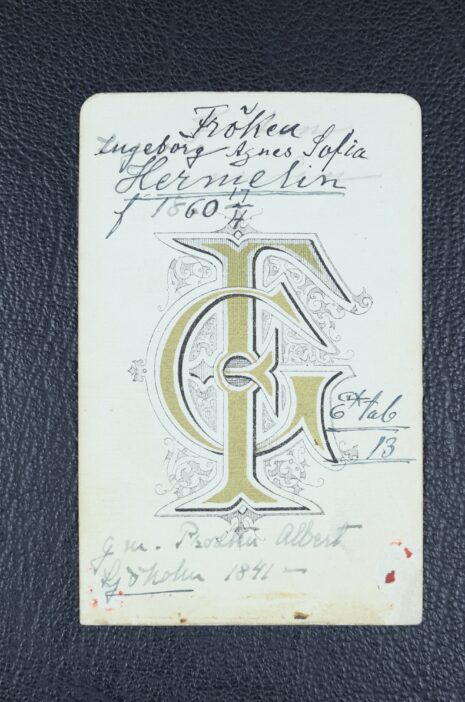 Fröken
Ingeborg Agnes Sofia
Hermelin
f 1860 17/4
GF
E* tab
13
g m. Albert
Sjöholm 1841 —